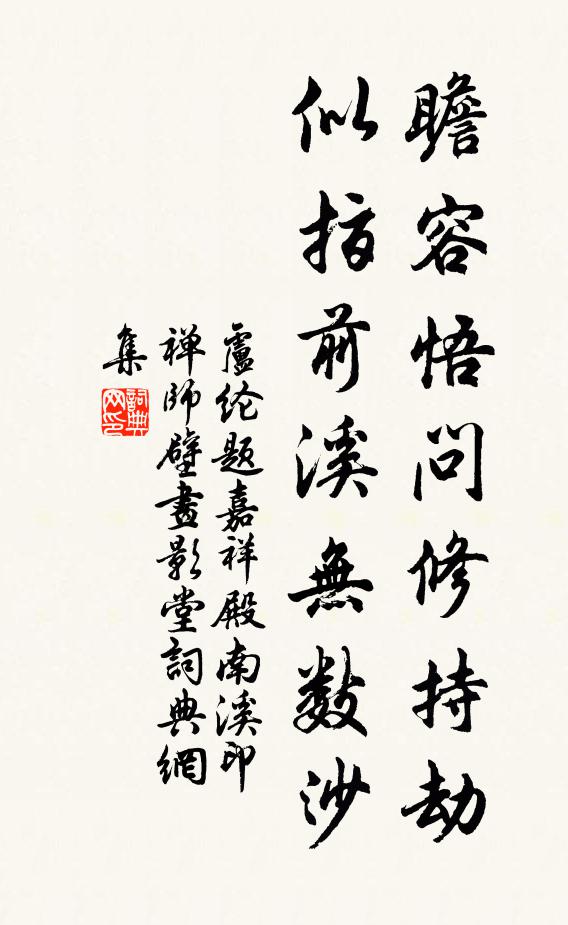 瞻容悟問修持劫
似指前溪無數沙
盧纶題嘉祥殿南溪印
禅師壁畫影堂詞典網
集
詞典
网印